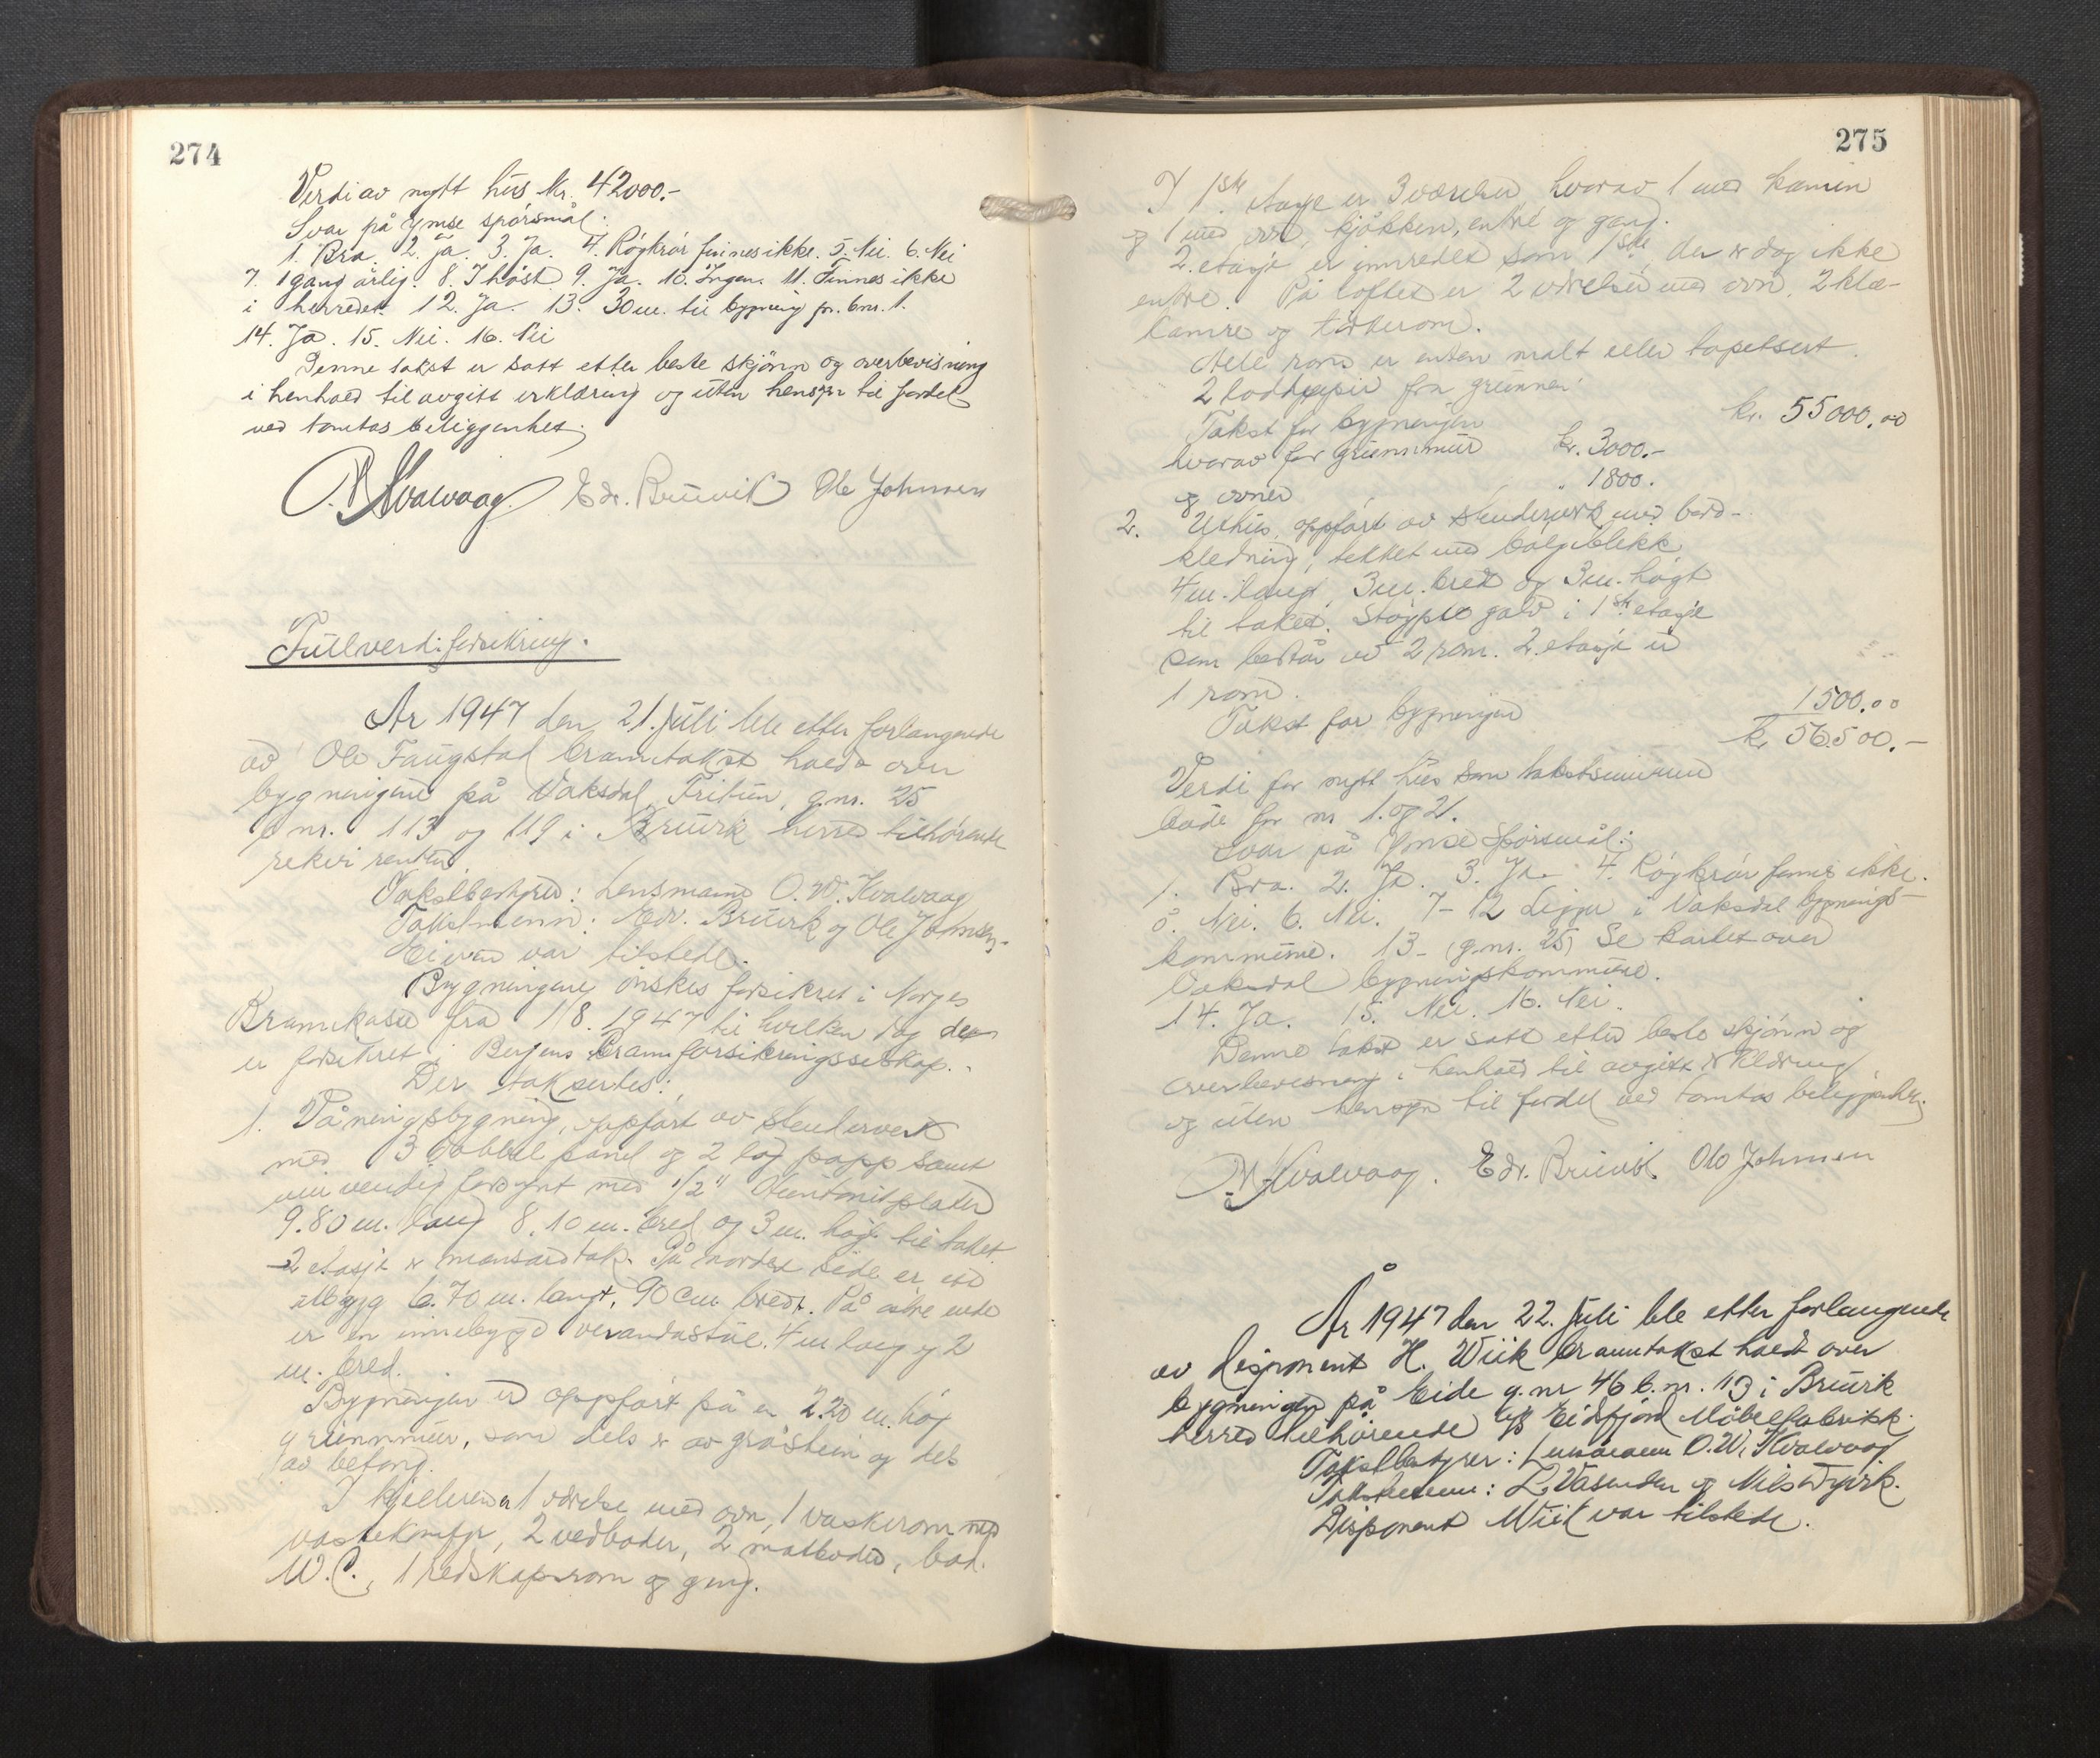 274
Verdi av nytt hus kr. 42000.-
Svar på ymse spörsmål:
1. Bra. 2. Ja. 3. Ja. 4. Rögkrör finnes ikke. 5. Nei. 6. Nei
7. 1 gang årlig. 8. I höst. 9. Ja. 10. Ingen. 11. Finnes ikke
i herredet. 12. Ja. 13. 30 m. til bygning pr. bnr. 1.
14. Ja. 15. Nei. 16. Nei
Denne takst er satt etter beste skjönn og overbevisning
i henhold til avgitt erklæring og uten hensyn til fordel
ved tomtas beliggenhet.
Kvalvaag. Edv. Bruvik Ole Johnsen
Fullverdiforsikring.
År 1947 den 21. juli ble etter forlangende
av Ole Faugstad branntakst holdt over
bygningene på Vaksdal, g.nr. 25
b nr. 113 og 119 i Bruvik herred tilhörende
rekvirenten.
Takstbestyrer: Lensmann O. W. Kvalvaag
Takstmenn: Edv. Bruvik og Ole Johnsen.
Eieren var tilstede.
Bygningene önskes forsikret i Norges
Brannkasse fra 1/8. 1947 til hvilken dag den
er forsikret i Bergens Brannforsikringsselskap.
Der taksertes:
1. Våningsbygning, oppfört av stenderverk
med 3 dobbel panel og 2 lag papp samt
innvendig forsynt med 1/2" Huntonitplater
9.80 m. lang 8.10 m. bred og 3 m. høg til taket
2 etasje & mansardtak. På nordre side er ett
utbygg 6.70 m. langt, 90 cm. bredt. På övre ende
er en innebygd verandastue. 4 m lang og 2
m. bred.
Bygningen er oppfört på en 2.20 m. høg
grunnmur, som dels er av gråstein og dels
av betong.
I kjelleren er 1 værelse med ovn, 1 vaskerom med
vaskekomfyr, 2 vedboder, 2 matboder, bad.
W.C., 1 redskapsrom og gang.
275
I 1ste etasje er 3 værelser, hvorav 1 med kamin
og 1 med ovn, kjökken, entré og gang.
2. etasje er innredet som 1ste, der er dog ikke
entré. På loftet er 2 værelser med ovn, 2 klæ-
kamre og törkerom.
Alle rom er enten malt eller tapetsert.
2 fra grunnen.
Takst for bygningen kr. 55000.00
hvorav for grunnmur kr. 3000.-
og ovner " 1800.
2. Uthus, oppfört av stenderverk med bord-
kledning, tekket med bölgeblikk,
4 m. langt, 3 m. bredt og 3 m. högt
til taket. Stöypt golv i 1ste etasje
som består av 2 rom. 2. etasje er
1 rom.
Takst for bygningen 1500.00
kr. 56500.-
Verdi for nytt hus som takstsummene
både for nr 1. og 2.
Svar på ymse spörsmål:
1. Bra. 2. Ja. 3. Ja. 4. Rögkrör finnes ikke.
5. Nei. 6. Nei. 7-12 Ligger i Vaksdal bygnings-
kommune. 13 - (g.nr. 25) Se kartet over
Vaksdal bygningskommune.
14. Ja. 15. Nei. 16. Nei.
Denne takst er satt etter beste skjönn og
overbevisning i henhold til avgitt erklæring
og uten hensyn til fordel ved tomtas beliggenhet.
Kvalvaag. Edv. Bruvik Ole Johnsen
År 1947 den 22. juli ble etter forlangende
av disponent H. Wiik branntakst holdt over
bygningen på Eide g.nr 46 b.nr. 13 i Bruvik
herred tilhörende A/S Eidsfjord Möbelfabrikk.
Takstbestyrer: Lensmann O. W. Kvalvaag
Takstmenn: L. Vasenden og Nils Dyvik.
Disponent Wiik var tilstede.